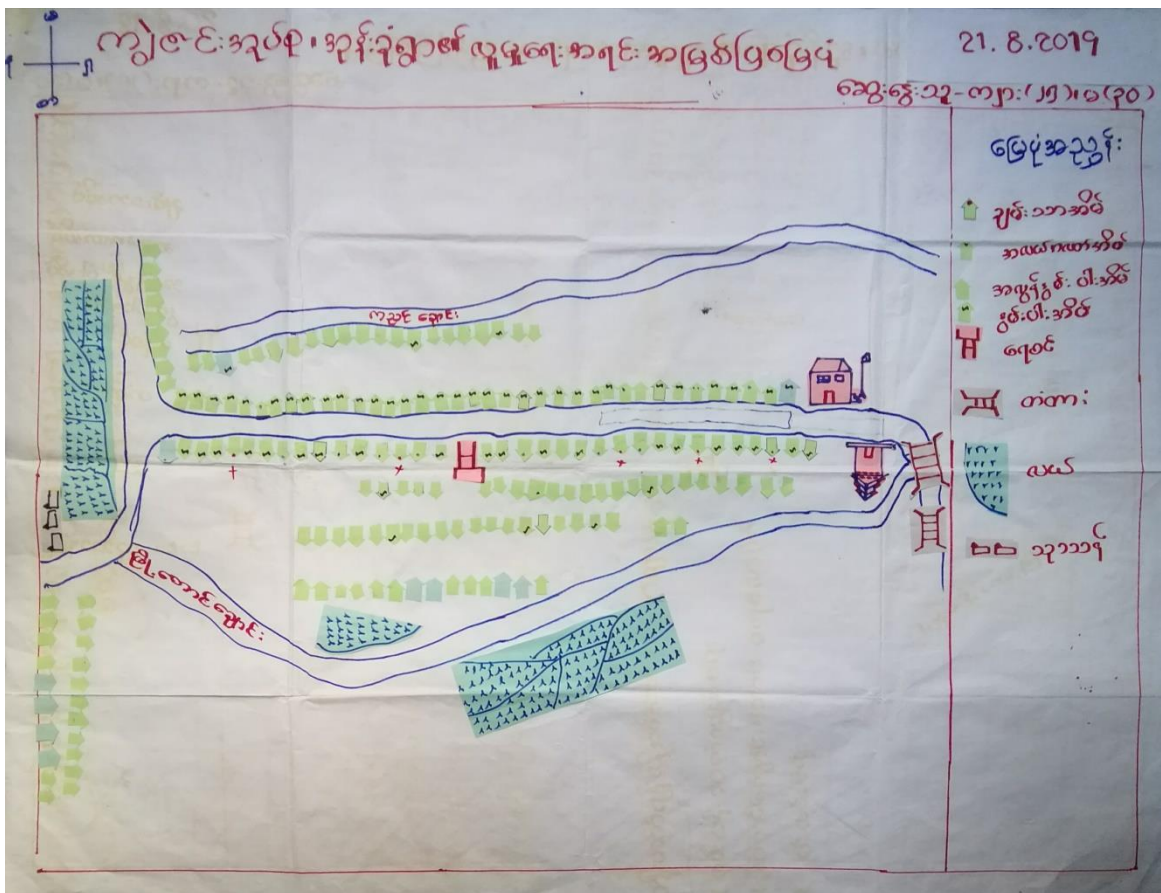 ကျွဲဇင်းအုပ်စု၊ အုန်းခုံရွာ၏ လူမှုရေးအရင်းအမြစ်ပြမြေပုံ
21.8.2019
ဆွေးနွေးသူ-ကျား(၂၅)၊မ(၃၀)
မြေပုံအညွှန်း
ချမ်းသာအိမ်
အလယ်အလတ်အိမ်
အလွန်နွမ်းပါးအိမ်
နွမ်းပါးအိမ်
ရေစင်
တံတား
လယ်
သုသာန်
ကညင်ချောင်း